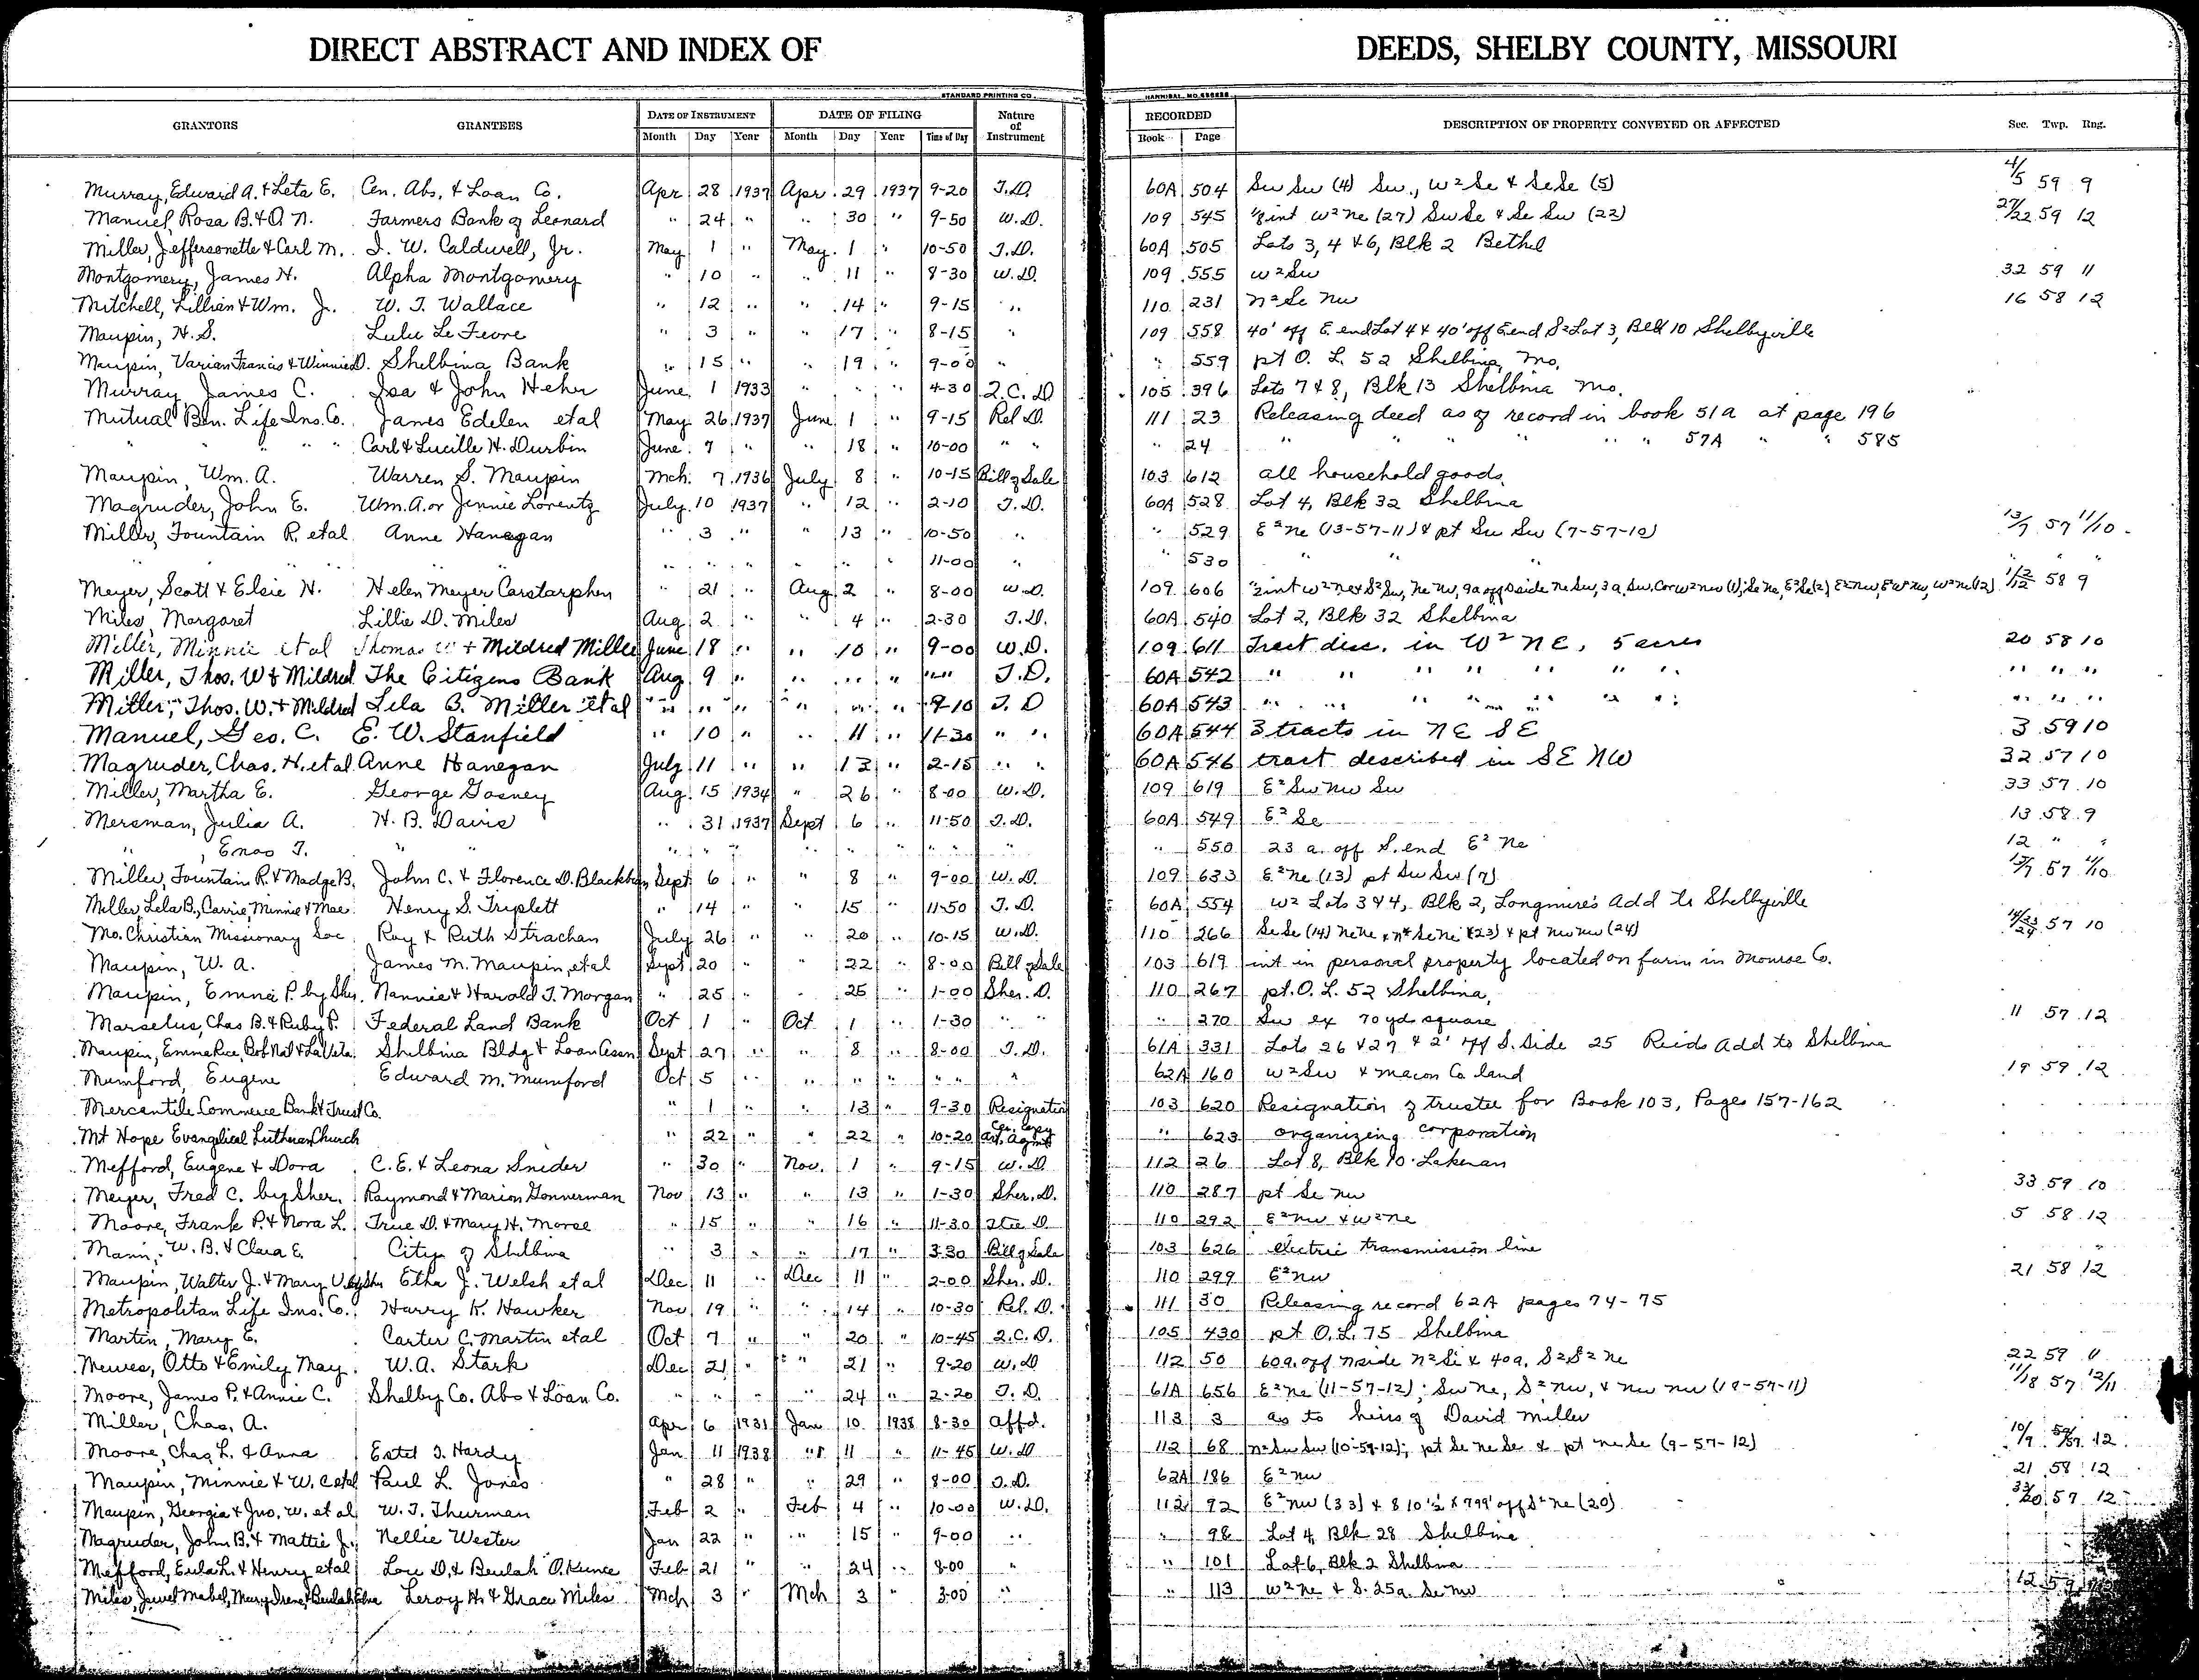 DIRECT ABSTRACT AND INDEX OF DEEDS, SHELBY COUNTY, MISSOURI
STANDARD PRINTING CO. HANNIBAL, MO.
GRANTORS GRANTEES DATE OF INSTRUMENT DATE OF FILING Nature of Instrument RECORDED DESCRIPTION OF PROPERTY CONVEYED OR AFFECTED Sec. Twp. Rng.
Month Day Year Month Day Year Time of Day Book Page
Murray, Edward A. & Leta E. Cen. Abs. & Loan Co. Apr 28 1937 Apr. 29 1937 9-20 T.D. 60A 504 Sw Sw (4) Sw., W² Se & Se Se (5) 4/5 59 9
Manuel, Rosa B. & O. N. Farmers Bank of Leonard " 24 " " 30 " 9-50 W.D. 109 545 int W² Ne (27) Sw Se & Se Sw (22) 27/22 59 12
Miller, Jeffersonette & Carl M. J. W. Caldwell, Jr. May 1 " May. 1 " 10-50 T.D. 60A 505 Lots 3, 4 & 6, Blk 2 Bethel
Montgomery, James H. Alpha Montgomery " 10 " " 11 " 8-30 W.D. 109 555 W² Sw 32 59 11
Mitchell, Lillian & Wm. J. W. T. Wallace " 12 " " 14 " 9-15 " 110 231 N² Se Nw 16 58 12
Maupin, H. S. Lulu Le Fevre " 3 " " 17 " 8-15 " 109 558 40' off E. end Lot 4 & 40' off E end S² Lot 3, Blk 10 Shelbyville
Maupin, Varian Francis & Winnie D. Shelbina Bank " 15 " " 19 " 9-00 " " 559 pt O. L. 52 Shelbina, Mo.
Murray, James C. Isa & John Hehr June 1 1933 " " " 4-30 Q.C.D 105 396 Lots 7 & 8, Blk 13 Shelbina Mo.
Mutual Ben. Life Ins. Co. James Edelen etal May 26 1937 June 1 " 9-15 Rel D. 111 23 Releasing deed as of record in book 51A at page 196
" " " Carl & Lucille H. Durbin June 7 " " 18 " 10-00 " " " 24 " " " " " " 57A " " 585
Maupin, Wm. A. Warren S. Maupin Mch. 7 1936 July 8 " 10-15 Bill of Sale 103 612 all household goods.
Magruder, John E. Wm. A. or Jennie Lorentz July 10 1937 " 12 " 2-10 T.D. 60A 528 Lot 4, Blk 32 Shelbina
Miller, Fountain R. etal Anne Hanegan " 3 " " 13 " 10-50 " " 529 E² Ne (13-57-11) & pt Sw Sw (7-57-10) 13/7 57 11/10
" " " " " " " 11-00 " " 530 " " " " "
Meyer, Scott & Elsie H. Helen Meyer Carstarphen " 21 " Aug 2 " 8-00 W.D. 109 606 58 9
Miles, Margaret Lillie D. Miles Aug 2 " " 4 " 2-30 T.D. 60A 540 Lot 2, Blk 32 Shelbina
Miller, Minnie etal Thomas W & Mildred Miller June 18 " " 10 " 9-00 W.D. 109 611 Tract desc. in W² NE, 5 acres 20 58 10
Miller, Thos. W & Mildred The Citizens Bank Aug 9 " " " " " T.D. 60A 542 " " " " " " " " " "
Miller, Thos. W. & Mildred Lela B. Miller etal " " " " " " 9-10 T.D 60A 543 " " " " " " " " " "
Manuel, Geo. C. E. W. Stanfield " 10 " " 11 " 11-30 " " 60A 544 3 tracts in NE SE 3 59 10
Magruder, Chas. H. etal Anne Hanegan July 11 " " 13 " 2-15 " " 60A 546 tract described in SE NW 32 57 10
Miller, Martha E. George Gosney Aug. 15 1934 " 26 " 8-00 W.D. 109 619 E² Sw Nw Sw 33 57 10
Mersman, Julia A. H. B. Davis " 31 1937 Sept 6 " 11-50 T.D. 60A 549 E² Se 13 58 9
" , Enos T. " " " " " " " " " " 550 23 a. off S. end E² Ne 12 " "
Miller, Fountain R. & Madge B. John C. & Florence D. Blackburn Sept 6 " " 8 " 9-00 W.D. 109 633 E² Ne (13) pt Sw Sw (7) 13/7 57 11/10
Miller, Lela B., Carrie, Minnie & Mae Henry S. Triplett " 14 " " 15 " 11-50 T.D. 60A 554 W² Lots 3 & 4, Blk 2, Longmire's Add to Shelbyville
Mo. Christian Missionary Soc Roy & Ruth Strachan July 26 " " 20 " 10-15 W.D. 110 266 Se Se (14) Ne Ne & N² Se Ne (23) & pt Nw Nw (24) 14/23/24 57 10
Maupin, W. A. James M. Maupin, etal Sept 20 " " 22 " 8-00 Bill of Sale 103 619 int in personal property located on farm in Monroe Co.
Maupin, Emma P. by Sher. Nannie & Harold T. Morgan " 25 " " 25 " 1-00 Sher. D. 110 267 pt. O. L. 52 Shelbina,
Marselus, Chas B. & Ruby P. Federal Land Bank Oct 1 " Oct 1 " 1-30 " " " 270 Sw ex 70 yds square 11 57 12
Maupin, Emma Rice, Bob Nal & LaVeta Shelbina Bldg & Loan Assn Sept 27 " " 8 " 8-00 T.D. 61A 331 Lots 26 & 27 & 2' off S. Side 25 Reids Add to Shelbina
Mumford, Eugene Edward M. Mumford Oct 5 " " " " " " 62A 160 W² Sw & Macon Co. land 19 59 12
Mercantile Commerce Bank & Trust Co. " 1 " " 13 " 9-30 Resignation 103 620 Resignation of trustee for Book 103, Pages 157-162
Mt Hope Evangelical Lutheran Church " 22 " " 22 " 10-20 Cer. Copy Art. Agmt " 623 organizing corporation
Mefford, Eugene & Dora C. E. & Leona Snider " 30 " Nov. 1 " 9-15 W.D 112 26 Lot 8, Blk 10 Lakenan
Meyer, Fred C. by Sher. Raymond & Marion Gonnerman Nov 13 " " 13 " 1-30 Sher. D. 110 287 pt Se Nw 33 59 10
Moore, Frank P. & Nora L. True D. & Mary H. Morse " 15 " " 16 " 11-30 D. 110 292 E² Nw & W² Ne 5 58 12
Mann, W. B. & Clara E. City of Shelbina " 3 " " 17 " 3-30 Bill of Sale 103 626 electric transmission line
Maupin, Walter J. & Mary V. by Sher Etha J. Welsh etal Dec 11 " Dec 11 " 2-00 Sher. D. 110 299 E² Nw 21 58 12
Metropolitan Life Ins. Co. Harry K. Hawker Nov 19 " " 14 " 10-30 Rel. D. 111 30 Releasing record 62A pages 74-75
Martin, Mary E. Carter C. Martin etal Oct 7 " " 20 " 10-45 Q.C.D. 105 430 pt O. L. 75 Shelbina
Mewes, Otto & Emily May W. A. Stark Dec 21 " " 21 " 9-20 W.D 112 50 60a. off N side N² Se & 40a. S² S² Ne 22 59 11
Moore, James P. & Annie C. Shelby Co. Abs & Loan Co. " " " " 24 " 2-20 T.D. 61A 656 E² Ne (11-57-12); Sw Ne, S² Nw, & Nw Nw (18-57-11) 11/18 57 12/11
Miller, Chas. A. Apr 6 1931 Jan 10 1938 8-30 Affd. 113 3 as to heirs of David Miller
Moore, Chas L. & Anna Estel T. Hardy Jan 11 1938 " 11 " 11-45 W.D 112 68 N² Sw Sw (10-59-12); pt Se Ne Se & pt Ne Se (9-57-12) 10/9 12
Maupin, Minnie & W. C etal Paul L. Jones " 28 " " 29 " 8-00 T.D. 62A 186 E² Nw 21 58 12
Maupin, Georgia & Jno. W. et al W. T. Thurman Feb 2 " Feb 4 " 10-00 W.D. 112 92 E² Nw (33) & 810½ x 799' off S² Ne (20) 33/20 57 12
Magruder, John B. & Mattie J. Nellie Wester Jan 22 " " 15 " 9-00 " " 98 Lot 4, Blk 28 Shelbina
Mefford, Eula L. & Henry etal Lou D. & Beulah O. Kunce Feb 21 " " 24 " 8-00 " " 101 Lot 6, Blk 2 Shelbina
Miles, Jewel Mabel, Mary Irene & Beulah Edna Leroy H. & Grace Miles Mch 3 " Mch 3 " 3-00 " " 113 W² Ne & S. 25a. Se Nw 12 59